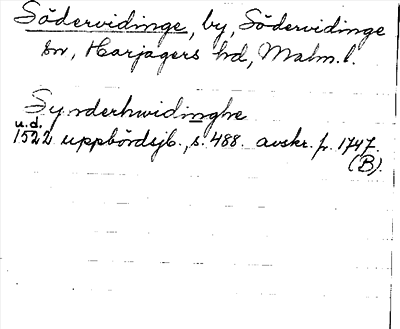 Södervidinge, by, Södervidinge
sn, Harjagers hd, Malm. l.
Synderhwidinghe
u.d.
1522 uppbördsjb., s. 488. avskr. fr. 1747.
(B).